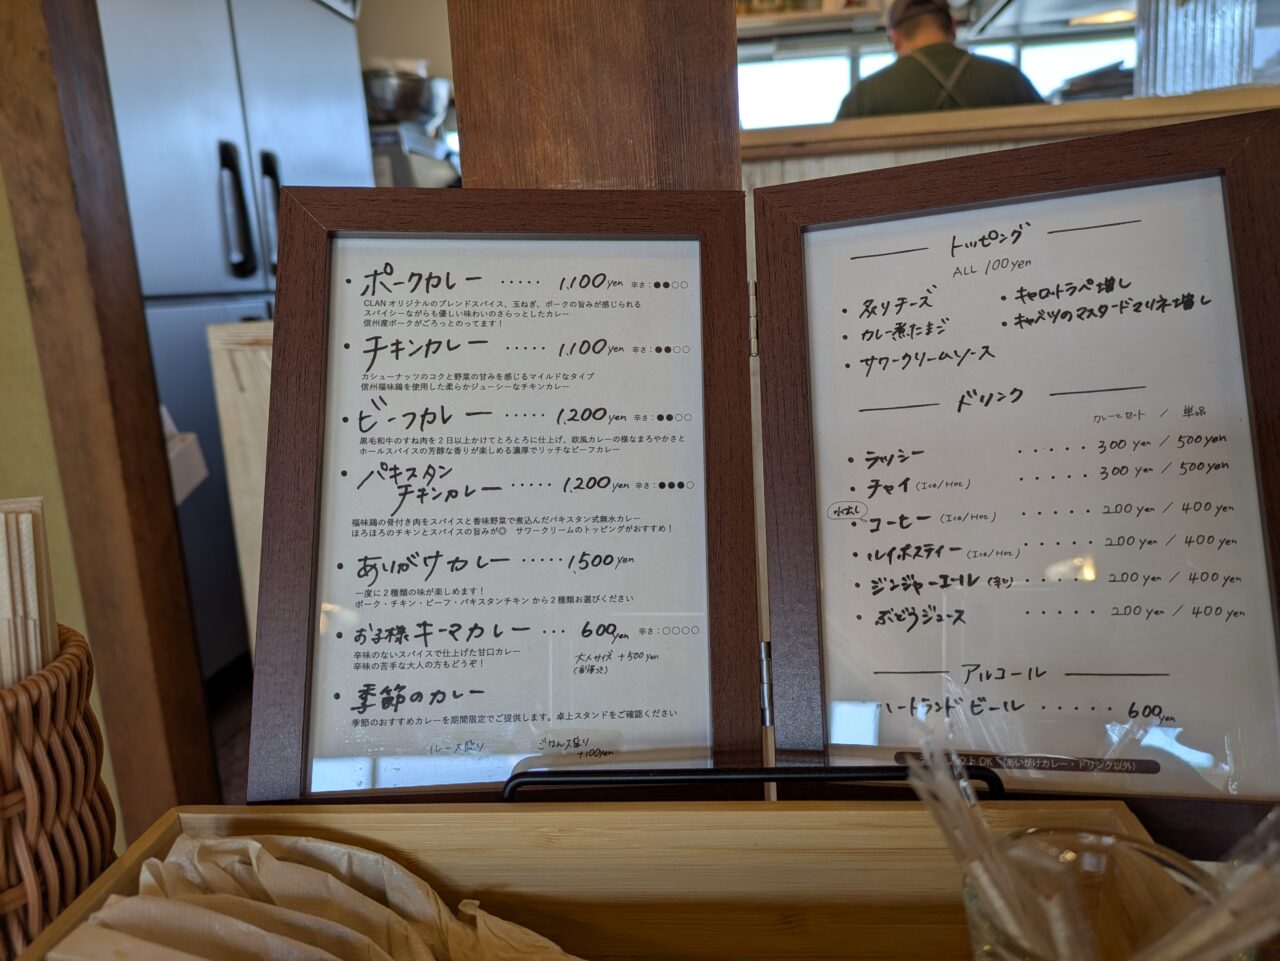 ・ポークカレー ・・・・・ 1,100yen 辛さ：●●○○
CLAN オリジナルのブレンドスパイス、玉ねぎ、ポークの旨みが感じられる
スパイシーながらも優しい味わいのさらっとしたカレー
信州産ポークがごろっとのってます！
・チキンカレー ・・・・・ 1,100yen 辛さ：●●○○
カシューナッツのコクと野菜の甘みを感じるマイルドなタイプ
信州福味鶏を使用した柔らかジューシーなチキンカレー
・ビーフカレー ・・・・・ 1,200yen 辛さ：●●○○
黒毛和牛のすね肉を２日以上かけてとろとろに仕上げ、欧風カレーの様なまろやかさと
ホールスパイスの芳醇な香りが楽しめる濃厚でリッチなビーフカレー
・パキスタン
チキンカレー ・・・・ 1,200yen 辛さ：●●●○
福味鶏の骨付き肉をスパイスと香味野菜で煮込んだパキスタン式無水カレー
ほろほろのチキンとスパイスの旨みが◎　サワークリームのトッピングがおすすめ！
・あいがけカレー ・・・・・ 1,500yen
一度に２種類の味が楽しめます！
ポーク・チキン・ビーフ・パキスタンチキン から２種類お選びください
・お子様キーマカレー ・・・ 600yen 辛さ：○○○○
辛味のないスパイスで仕上げた甘口カレー
辛味の苦手な大人の方もどうぞ！
大人サイズ +500yen
・季節のカレー
季節のおすすめカレーを期間限定でご提供します。卓上スタンドをご確認ください
ルー大盛り ごはん大盛り
+100yen
トッピング
ALL 100yen
・炙りチーズ
・カレー煮たまご
・サワークリームソース
・キャロットラペ増し
・キャベツのマスタードマリネ増し
ドリンク
カレーとセット / 単品
・ラッシー ・・・・・ 300yen / 500yen
・チャイ (Ice/Hot) ・・・・・ 300yen / 500yen
水出し
・コーヒー (Ice/Hot) ・・・・・ 200yen / 400yen
・ルイボスティー (Ice/Hot) ・・・・・ 200yen / 400yen
・ジンジャーエール (辛口) ・・・・・ 200yen / 400yen
・ぶどうジュース ・・・・・ 200yen / 400yen
アルコール
ハートランドビール ・・・・・ 600yen
OK （あいがけカレー・ドリンク以外）